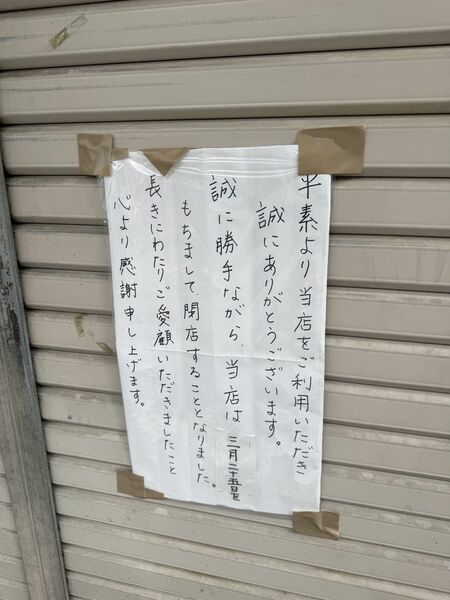 平素より当店をご利用いただき
誠にありがとうございます。
誠に勝手ながら、当店は三月二十五日を
もちまして、閉店することとなりました。
長きにわたりご愛顧いただきましたこと
心より感謝申し上げます。